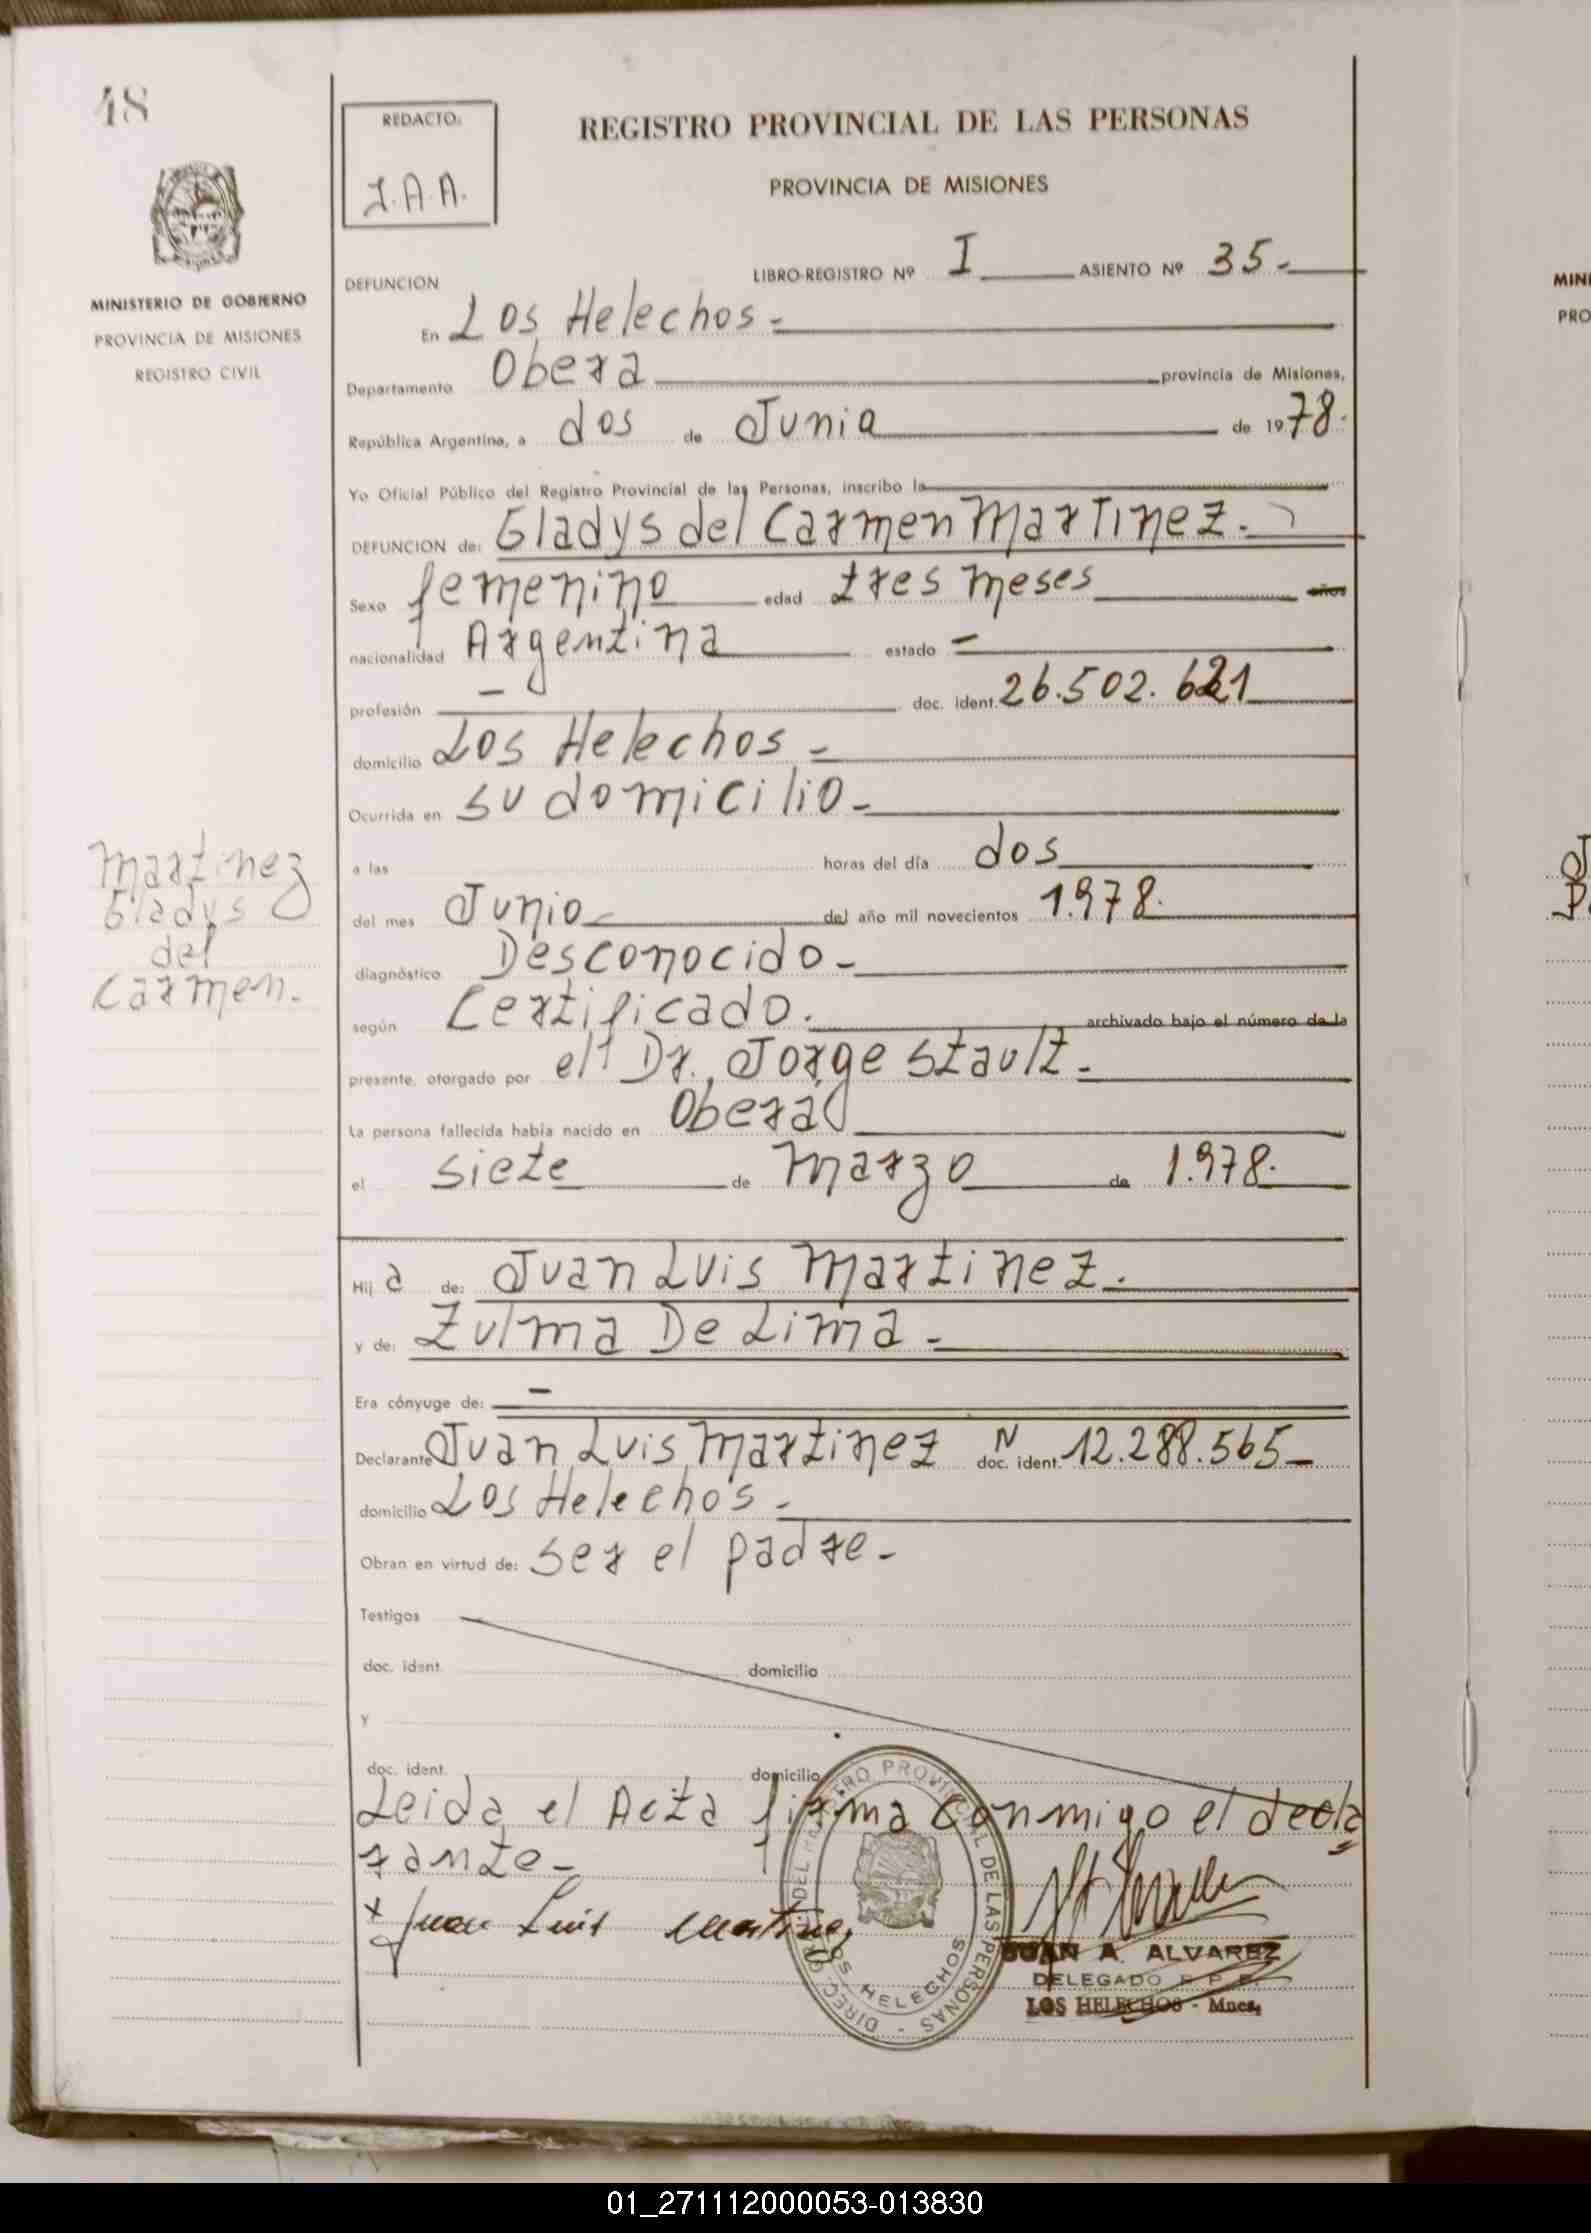 48
MINISTERIO DE GOBIERNO
PROVINCIA DE MISIONES
REGISTRO CIVIL
Martinez
Gladys
del
Carmen.
REDACTO:
J.A.A.
REGISTRO PROVINCIAL DE LAS PERSONAS
PROVINCIA DE MISIONES
DEFUNCION LIBRO-REGISTRO Nº I ASIENTO Nº 35.-
En Los Helechos.-
Departamento Obera provincia de Misiones,
República Argentina, a dos de Junia de 1978.
Yo Oficial Público del Registro Provincial de las Personas, inscribo la
DEFUNCION de: Gladys del Carmen Martinez.
Sexo femenino edad tres meses años
nacionalidad Argentina estado -
profesión - doc. ident. 26.502.621
domicilio Los Helechos -
Ocurrida en su domicilio -
a las horas del día dos
del mes Junio del año mil novecientos 1.978.
diagnóstico Desconocido -
según Certificado. archivado bajo el número de la
presente, otorgado por el Dr. Jorge Stault -
La persona fallecida había nacido en Oberá
el siete de Marzo de 1.978.
Hij a de: Juan Luis Martinez.
y de: Zulma De Lima -
Era cónyuge de: -
Declarante Juan Luis Martinez doc. ident. N 12.288.565-
domicilio Los Helechos -
Obran en virtud de: ser el padre -
Testigos
doc. ident. domicilio
y
doc. ident. domicilio
Leida el Acta firma conmigo el decla
rante -
x Juan Luis Martinez
DIREC. GRAL. DEL REGISTRO PROVINCIAL DE LAS PERSONAS -
LOS HELECHOS
JUAN A. ALVAREZ
DELEGADO R. P. P.
LOS HELECHOS - Mnes.
MINI
PRO
01_271112000053-013830